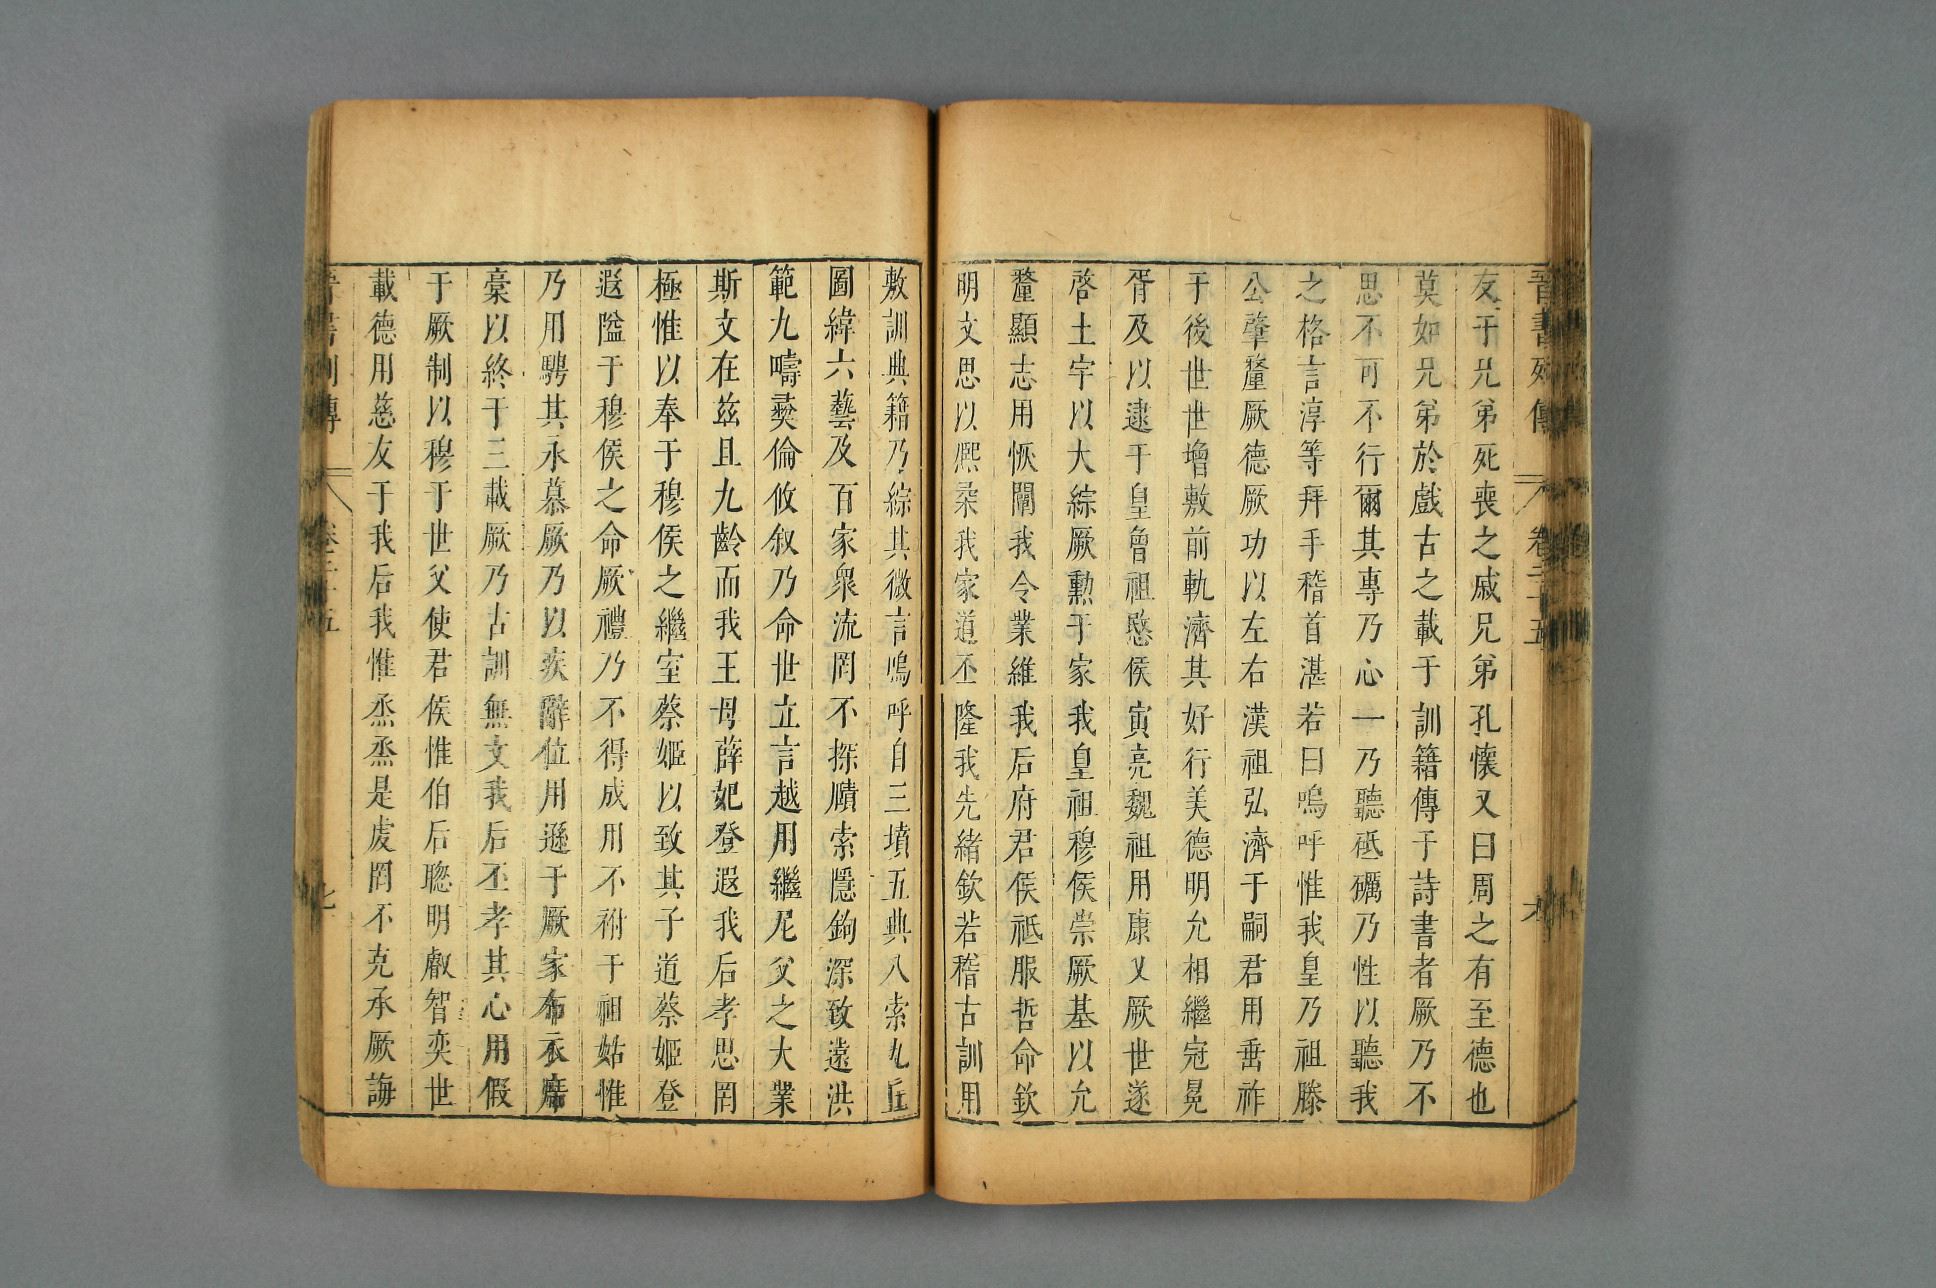 晉書列傳 卷二十五
友于兄弟死喪之戚兄弟孔懷又曰周之有至德也
莫如兄弟於戲古之載于訓籍傳于詩書者厥乃不
思不可不行爾其專乃心一乃聽砥礪乃性以聽我
之格言淳等拜手稽首湛若曰嗚呼惟我皇乃祖滕
公肇釐厥德厥功以左右漢祖弘濟于嗣君用垂祚
于後世世增敷前軌濟其好行美德明允相繼冠冕
胥及以逮于皇曾祖愍侯寅亮魏祖用康乂厥世遂
啓土宇以大綜厥勳于家我皇祖穆侯崇厥基以允
釐顯志用恢闡我令業維我后府君侯祗服哲命欽
明文思以熈柔我家道丕隆我先緒欽若稽古訓用
敷訓典籍乃綜其微言嗚呼自三墳五典八索九丘
圖緯六藝及百家衆流罔不探賾索隱鉤深致遠洪
範九疇彛倫攸叙乃命世立言越用繼尼父之大業
斯文在玆且九齡而我王母薛妃登遐我后孝思罔
極惟以奉于穆侯之繼室蔡姬以致其子道蔡姬登
遐隘于穆侯之命厥禮乃不得成用不祔于祖姑惟
乃用騁其永慕厥乃以疾辭位用遜于厥家布衣席
稾以終于三載厥乃古訓無文我后丕孝其心用假
于厥制以穆于世父使君侯惟伯后聰明叡智奕世
載德用慈友于我后我惟烝烝是虔罔不克承厥誨
晉書列傳 卷二十五 七